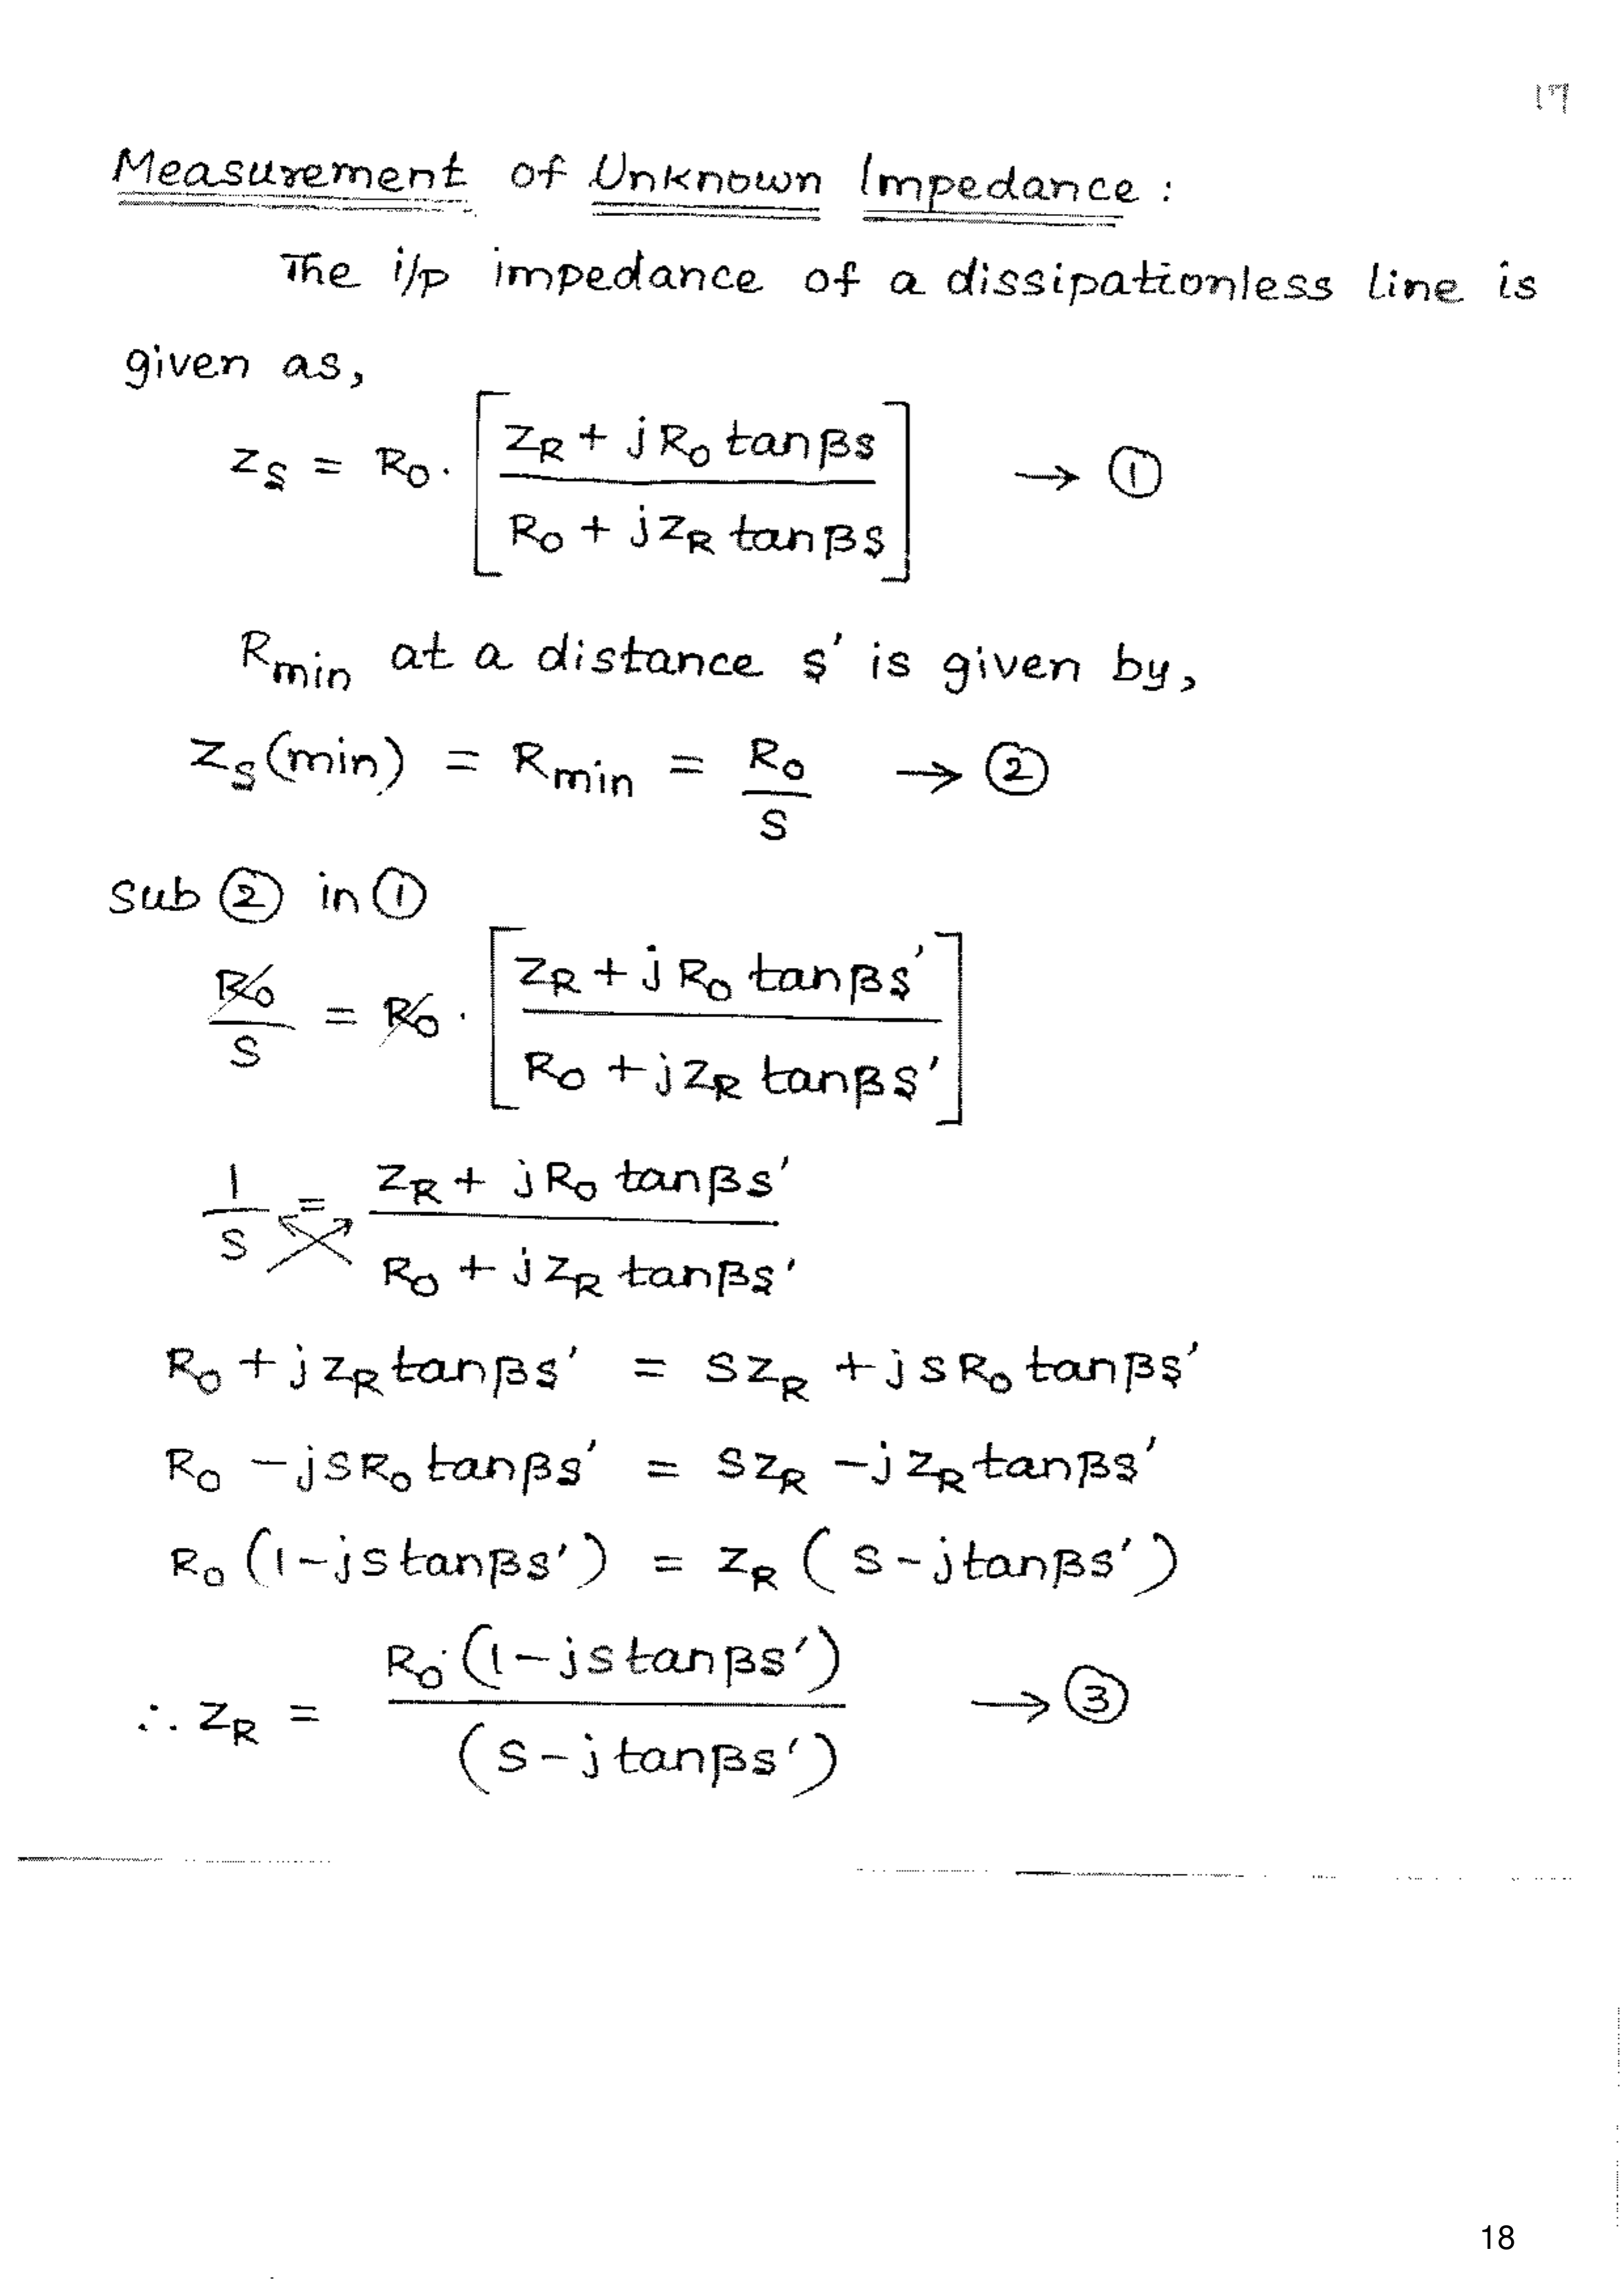 17
Measurement of Unknown Impedance :
The i/p impedance of a dissipationless line is
given as,
Z_S = R_O . [ (Z_R + j R_O tanβs) / (R_O + j Z_R tanβs) ] → ①
R_min at a distance s' is given by,
Z_s(min) = R_min = R_O / S → ②
sub ② in ①
R_O / S = R_O . [ (Z_R + j R_O tanβs') / (R_O + j Z_R tanβs') ]
1 / S = (Z_R + j R_O tanβs') / (R_O + j Z_R tanβs')
R_O + j Z_R tanβs' = S Z_R + j S R_O tanβs'
R_O - j S R_O tanβs' = S Z_R - j Z_R tanβs'
R_O (1 - j S tanβs') = Z_R ( S - j tanβs' )
∴ Z_R = R_O (1 - j S tanβs') / (S - j tanβs') → ③
18